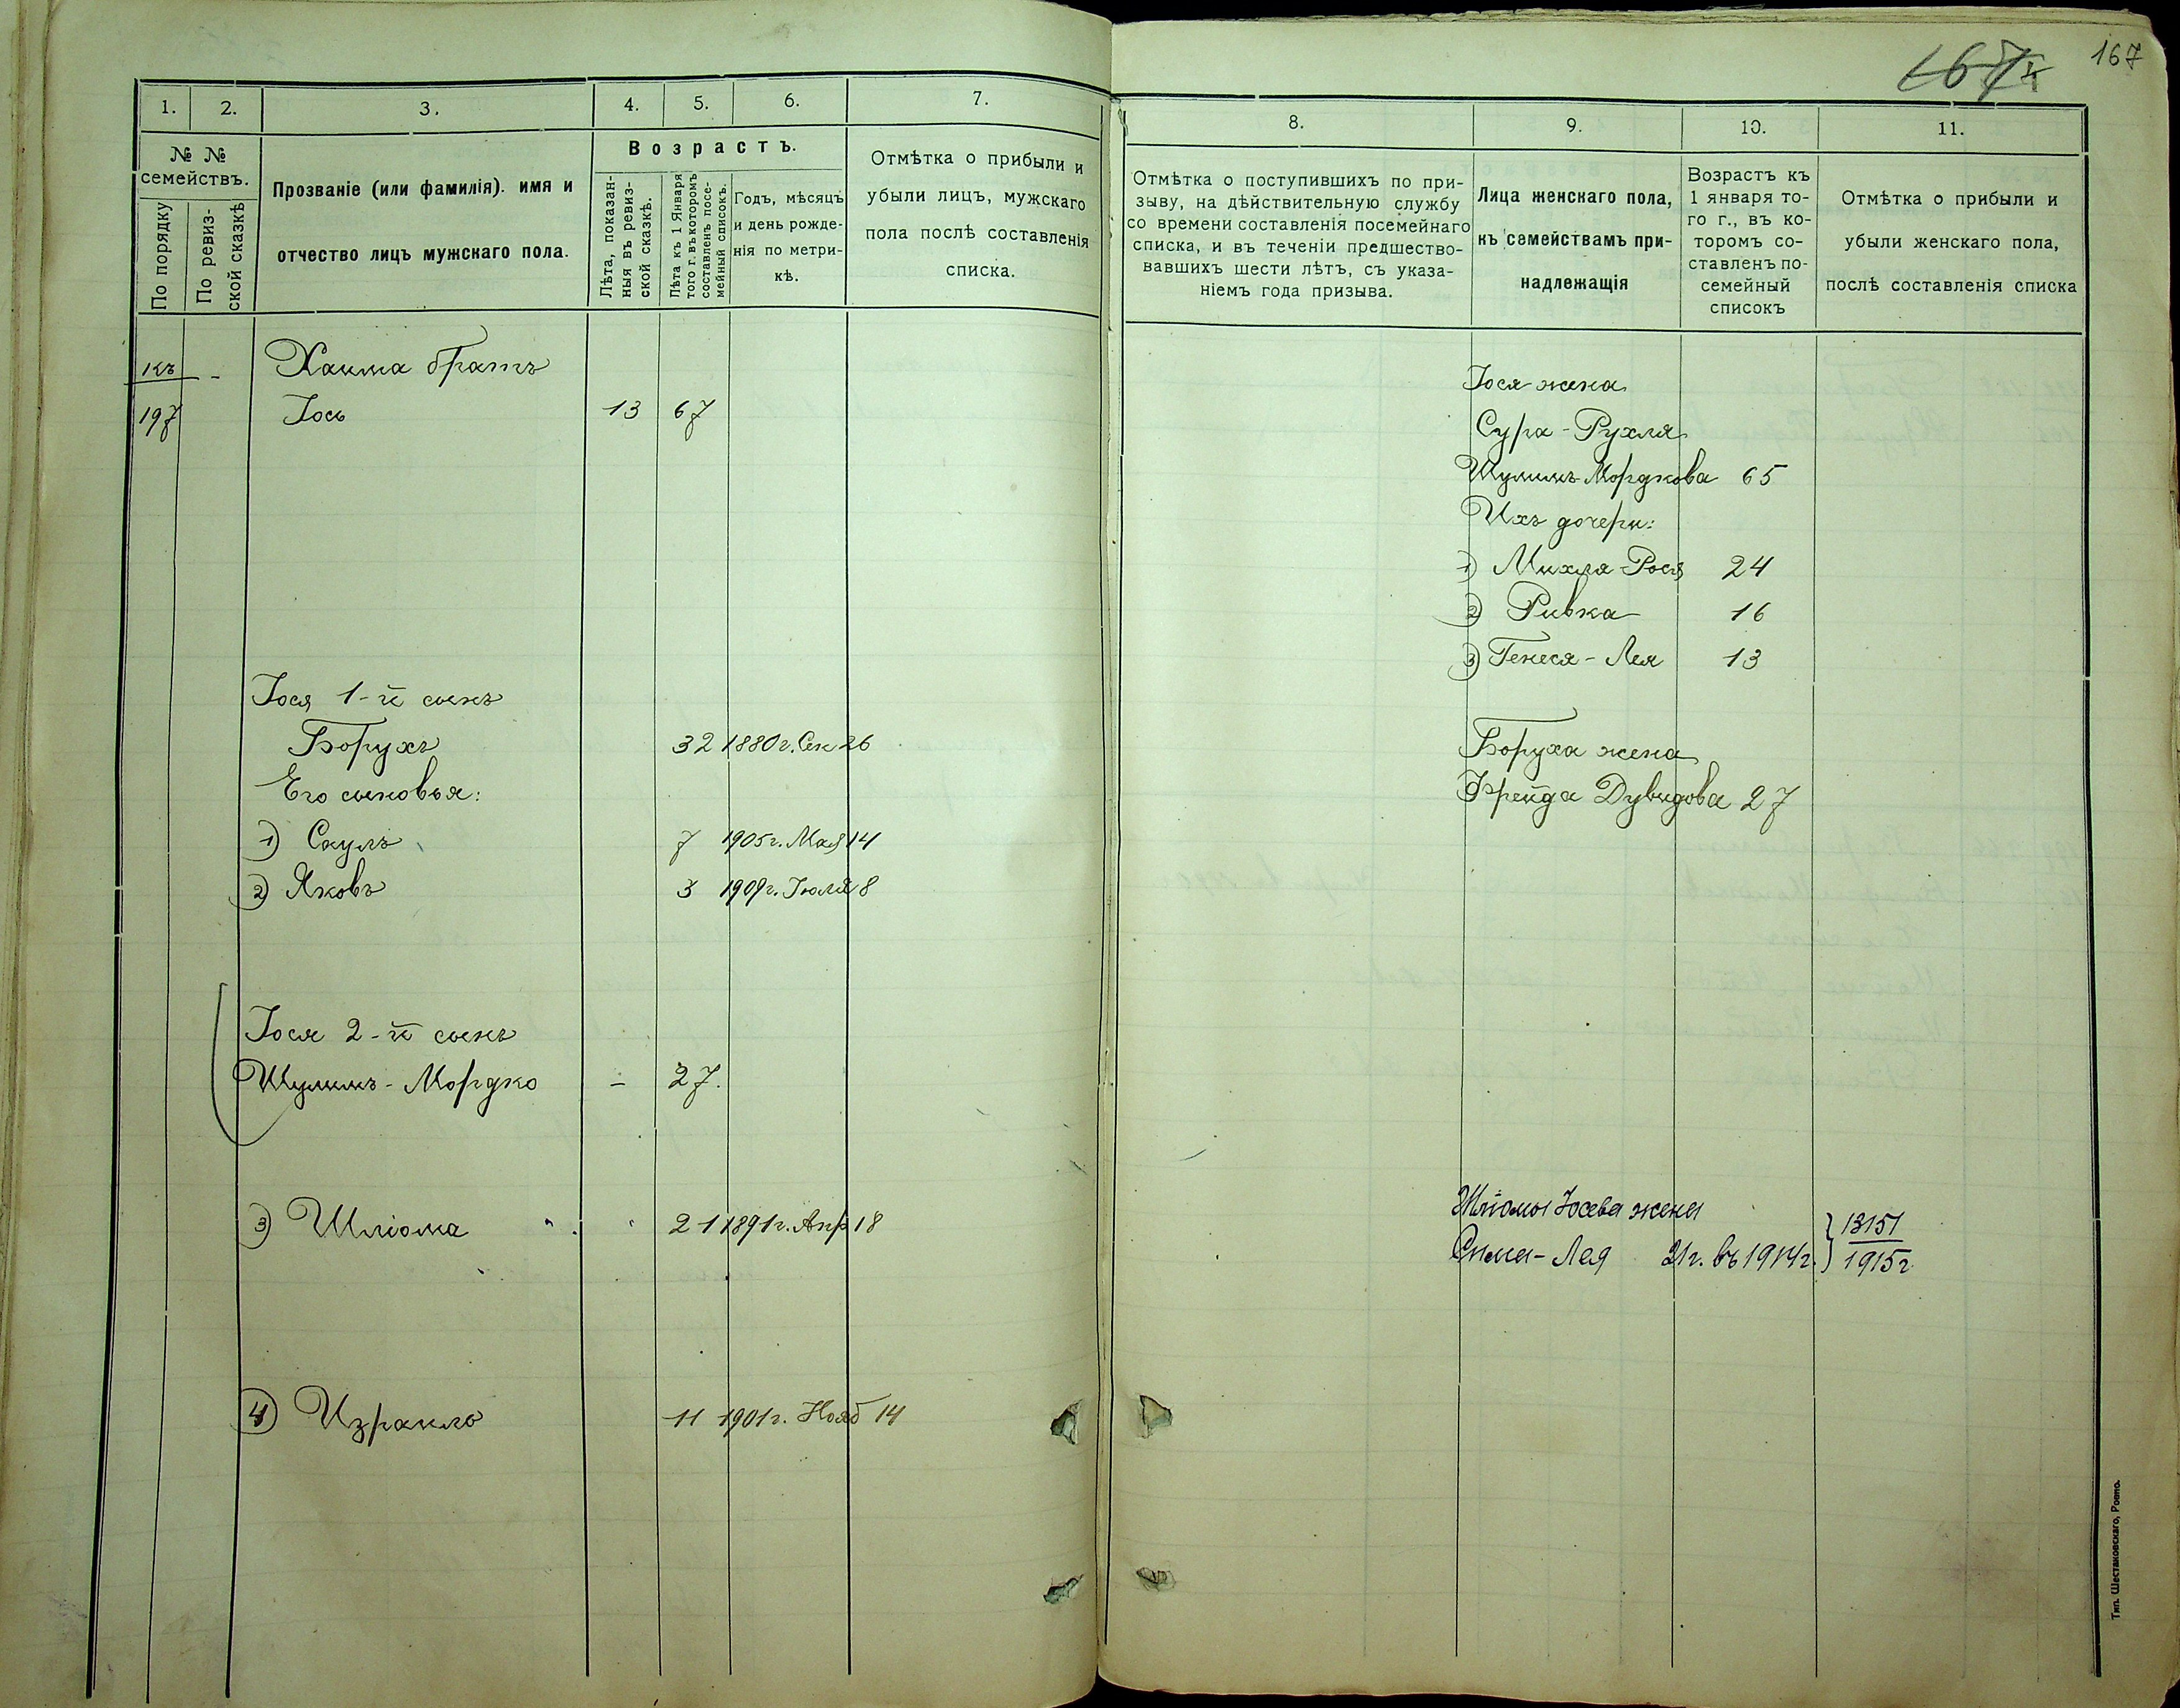 167
1.
2.
3.
4.
5.
6.
7.
№ №
семействъ.
По порядку
По ревиз-
ской сказкѣ
Прозваніе (или фамилія). имя и
отчество лицъ мужскаго пола.
Возрастъ.
Лѣта, показан-
ныя въ ревиз-
ской сказкѣ.
Лѣта къ 1 Января
того г. въ которомъ
составленъ посе-
мейный списокъ.
Годъ, мѣсяцъ
и день рожде-
нія по метри-
кѣ.
Отмѣтка о прибыли и
убыли лицъ, мужскаго
пола послѣ составленія
списка.
къ - Хаима братъ
197 Іось 13 67
Іося 1-й сынъ
Борухъ 32 1880г. Сен 26
Его сыновья:
1) Сауль 7 1905г. Мая 14
2) Яковъ 3 1909г. Іюля 8
Іося 2-й сынъ
Шулимъ-Мордко - 27.
3) Шліома 21 1891г. Апр 18
4) Израиль 11 1901г. Нояб 14
8.
9.
10.
11.
Отмѣтка о поступившихъ по при-
зыву, на дѣйствительную службу
со времени составленія посемейнаго
списка, и въ теченіи предшество-
вавшихъ шести лѣтъ, съ указа-
ніемъ года призыва.
Лица женскаго пола,
къ семействамъ при-
надлежащія
Возрастъ къ
1 января то-
го г., въ ко-
торомъ со-
ставленъ по-
семейный
списокъ
Отмѣтка о прибыли и
убыли женскаго пола,
послѣ составленія списка
Іося жена
Сура-Рухля
Шулимъ Мордкова 65
Ихъ дочери:
1) Михля-Рося 24
2) Ривка 16
3) Генеся-Лея 13
Боруха жена
Фрейда Дувидова 27
Шліомы Іосева жена
Сима-Лея 21г. въ 1914г. } 13151
1915г.
Тип. Шестаковскаго, Ровно.